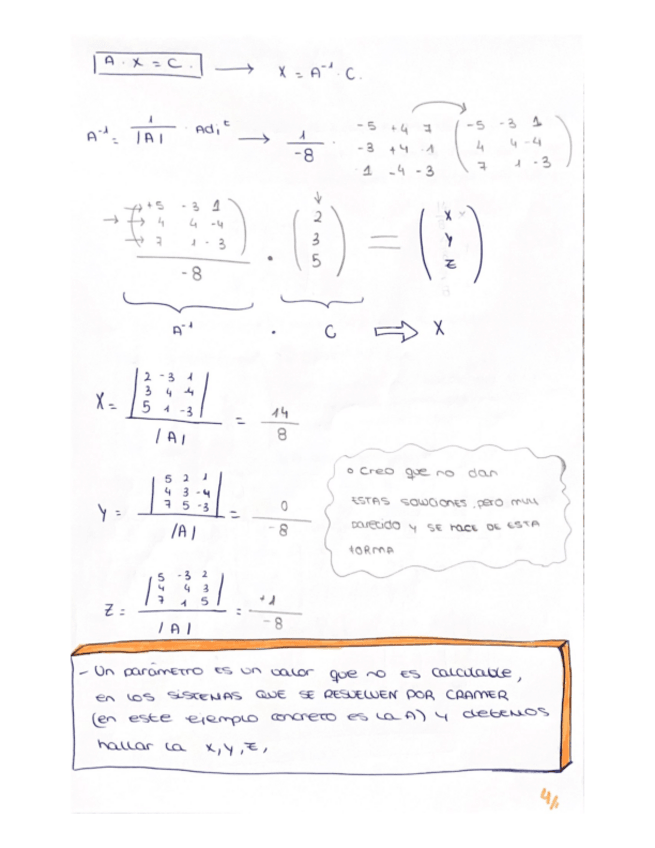 A · X = C. → X = A⁻¹ · C.
A⁻¹ = 1/|A| · Adjᵗ → 1/-8 ·
-5 +4 7
-3 +4 1
1 -4 -3
-5 -3 1
4 4 -4
7 1 -3
+5 -3 1
4 4 -4
7 1 -3
-8
·
2
3
5
=
X
Y
Z
A⁻¹ · C ⇒ X
X =
2 -3 1
3 4 -4
5 1 -3
|A|
= 14/8
Y =
5 2 1
4 3 -4
7 5 -3
|A|
= 0/-8
o Creo que no dan
ESTAS SOLUCIONES, pero muy
parecido y SE HACE DE ESTA
FORMA
Z =
5 -3 2
4 4 3
7 1 5
|A|
= +1/-8
- Un parámetro es un valor que no es calculable,
en los SISTEMAS QUE SE RESUELVEN POR CRAMER
(en este ejemplo concreto es la A) y debemos
hallar la x, y, z,
4/1